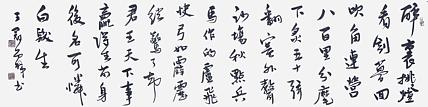 醉裏挑燈
看劍夢回
吹角連營
八百里分麾
下炙五十弦
翻塞外聲
沙場秋點兵
馬作的盧飛
快弓如霹靂
弦驚了却
君王天下事
贏得生前身
後名可憐
白髮生
書